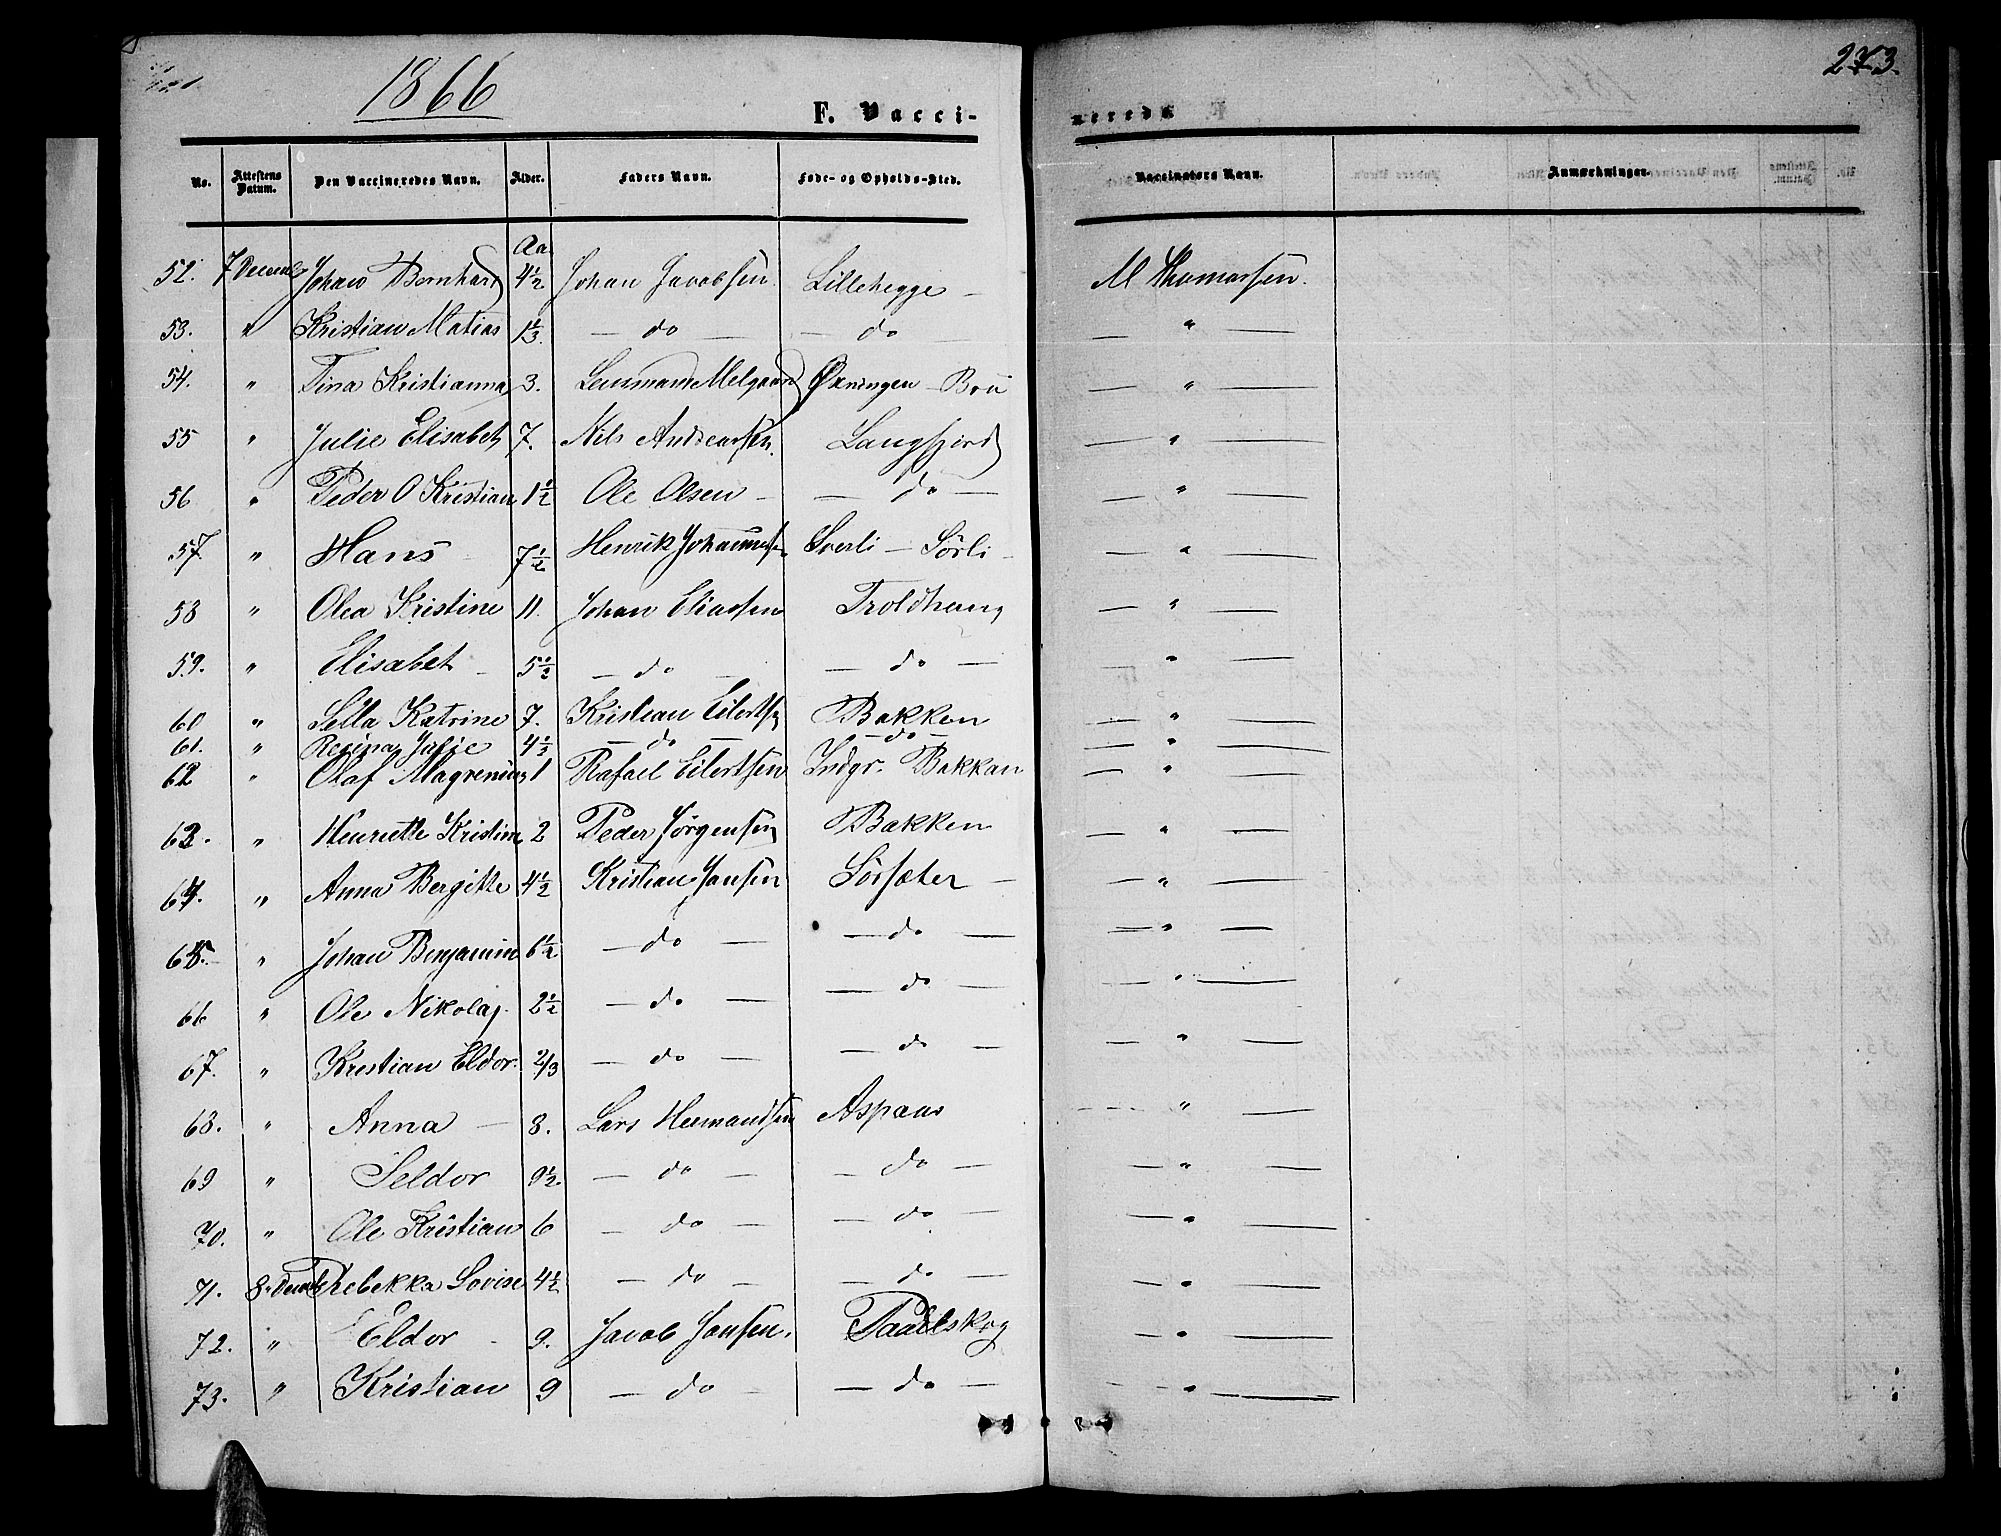 1866
273.
F. Vaccinerede
No. Attestens Datum. Den Vaccineredes Navn. Alder. Faders Navn. Føde- og Opholds-Sted. Vaccinators Navn. Anmærkninger.
Aa
52. 7 Decemb Johan Bernhard 4 1/2 Johan Jacobsen Lillehegge — M Thomassen.
53. " Kristian Matias 1/3. — do — — do — — " —
54. " Tina Kristianna 3. Lensmand Melgaard Øxningen — Brü — " —
55 " Julie Elisabet 7. Nils Andreassen. Langfjord — " —
56 " Peder O Kristian 1 1/2 Ole Olsen — — do — — " —
57 " Hans — 7 1/2 Henrik Johannessen Sverli — Sørli — — " —
58 " Olea Kristine 11. Johan Eliassen Troldhaug — " —
59. " Elisabet — 5 1/2 — do — — do — — " —
60 " Sella Katrine 7. Kristian Eilertsen Bakken — " —
61. " Regina Julie 4 1/3 — do — — do — — " —
62 " Olaf Magrenius 1 Rafael Eilertsen Indgr. Bakkan — " —
63. " Henriette Kristine 2 Peder Jørgensen Bakken — " —
64. " Anna Bergitte 4 1/2 Kristian Jansen Sørsæter — — " —
65. " Johan Benjamin 6 1/2 — do — — do — — " —
66 " Ole Nikolaj. 2 1/2 — do — — do — " —
67. " Kristian Eldor. 2/3 — do — — do — " —
68. " Anna — 8. Lars Hermandsen Aspaas — " —
69 " Seldor 9 1/2. — do — — do — — " —
70. " Ole Kristian 6 — do — — do — — " —
71. 8. Decemb Rebekka Lovise 4 1/2 — do — — do — — " —
72. " Eldor — 9. Jacob Jansen. Paalskog — " —
73. " Kristian 9 — do — — do — — " —